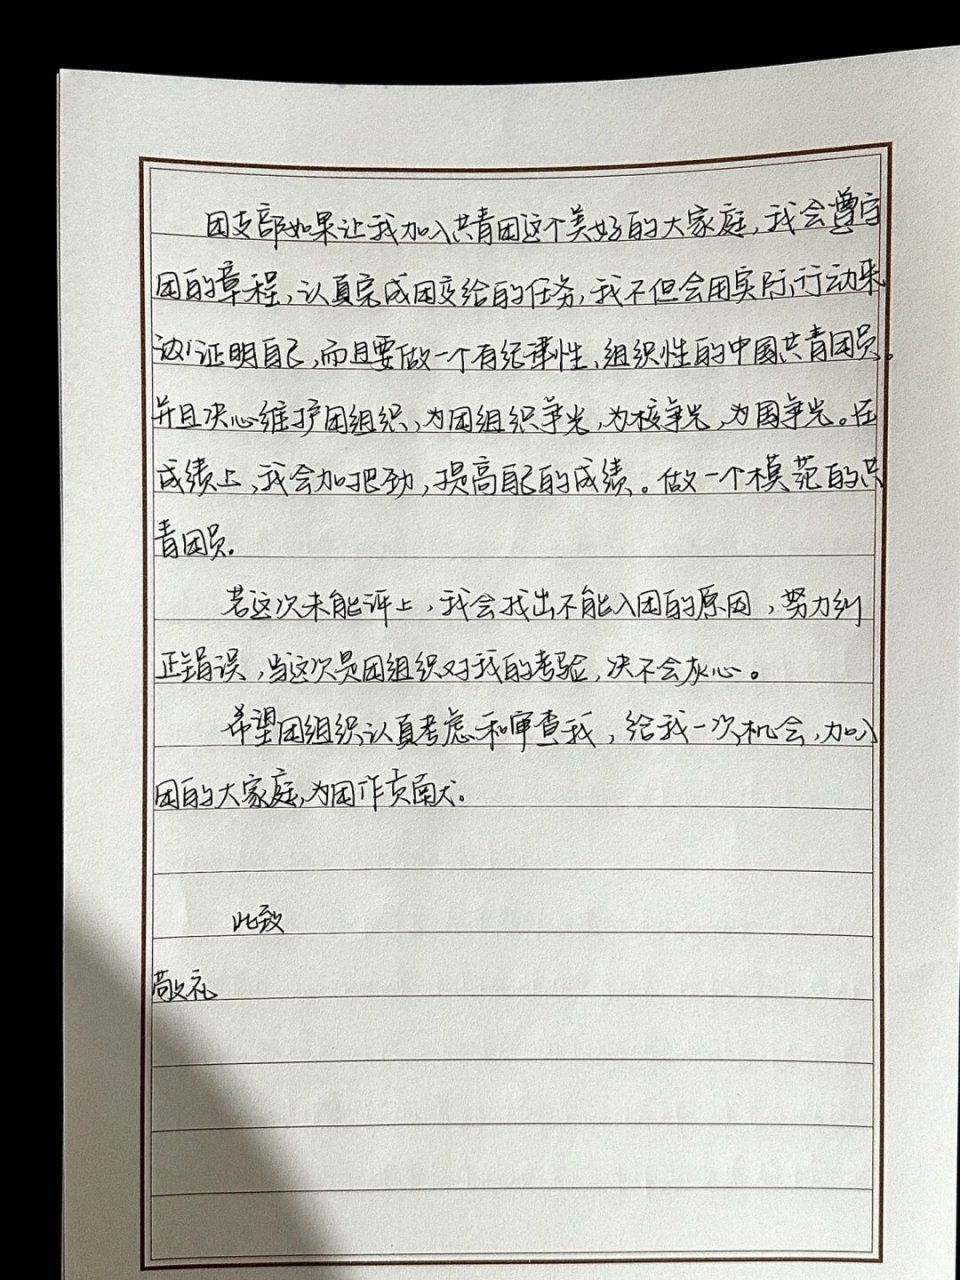 团支部如果让我加入共青团这个美好的大家庭，我会遵守
团的章程，认真完成团交给的任务，我不但会用实际行动来
证明自己，而且要做一个有纪律性、组织性的中国共青团员。
并且决心维护团组织，为团组织争光，为校争光，为国争光。在
成绩上，我会加把劲，提高自己的成绩。做一个模范的共
青团员。
若这次未能评上，我会找出不能入团的原因，努力纠
正错误，当这次是团组织对我的考验，决不会灰心。
希望团组织认真考虑和审查我，给我一次机会，加入
团的大家庭，为团作贡献。
此致
敬礼